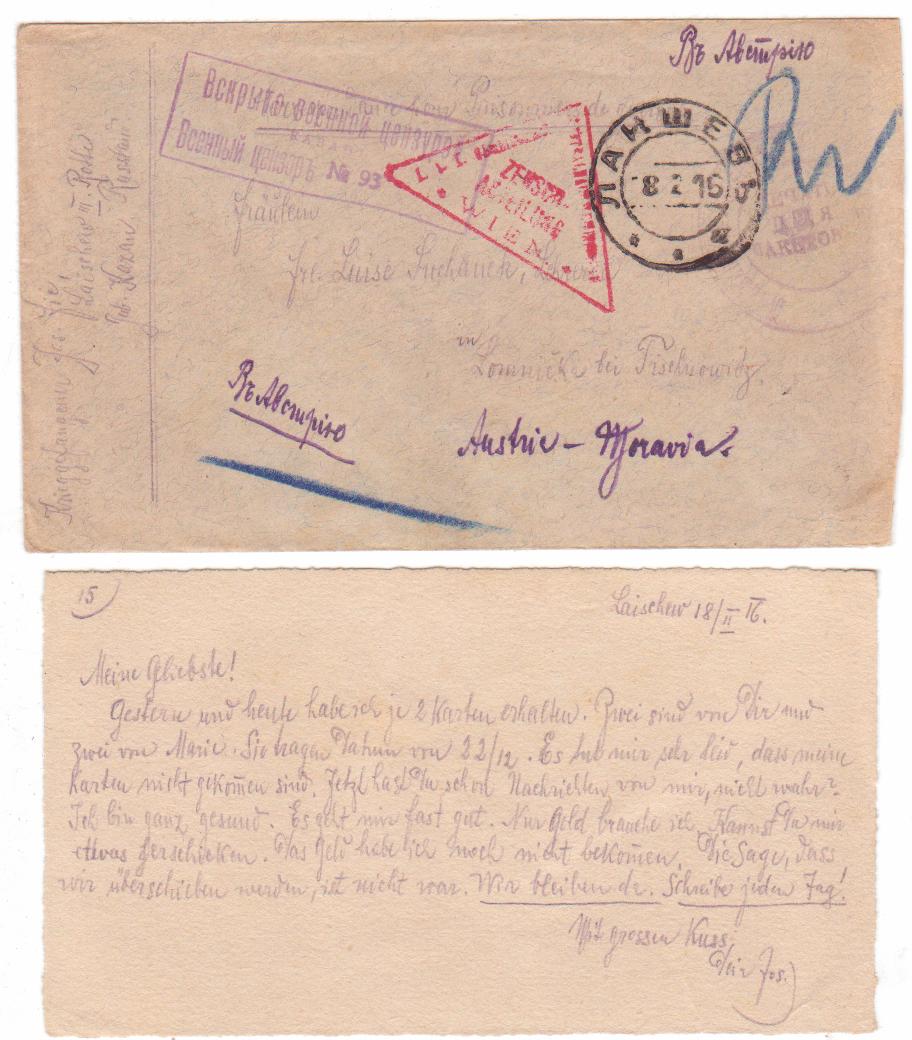 Въ Австрію
Вскрыто военной цензурой
Военный цензоръ № 93
ZENSUR-
ABTEILUNG
WIEN
ЛАИШЕВЪ
8 2 16
Fräulein
Frl. Luise Suchanek,
in
Lomnička bei Tischnowitz.
Въ Австрію
Austrie – Moravia.
Kriegsgefangener Jos.
Laischew
Gub. Kazan Russland
15)
Laischew 18/II 16.
Meine Geliebste!
Gestern und heute habe ich je 2 Karten erhalten. Zwei sind von Dir und
zwei von Marie. Sie tragen Datum von 22/12. Es tut mir sehr leid, dass meine
Karten nicht gekom̄en sind. Jetzt hast Du schon Nachrichten von mir, nicht wahr?
Ich bin ganz gesund. Es geht mir fast gut. Nur Geld brauche ich. Kannst Du mir
etwas herschicken. Das Geld habe ich noch nicht bekom̄en. Die Sage, dass
wir überschieben werden, ist nicht war. Wir bleiben da. Schreibe jeden Tag!
Mit grossen Kuss,
Dein Jos.)